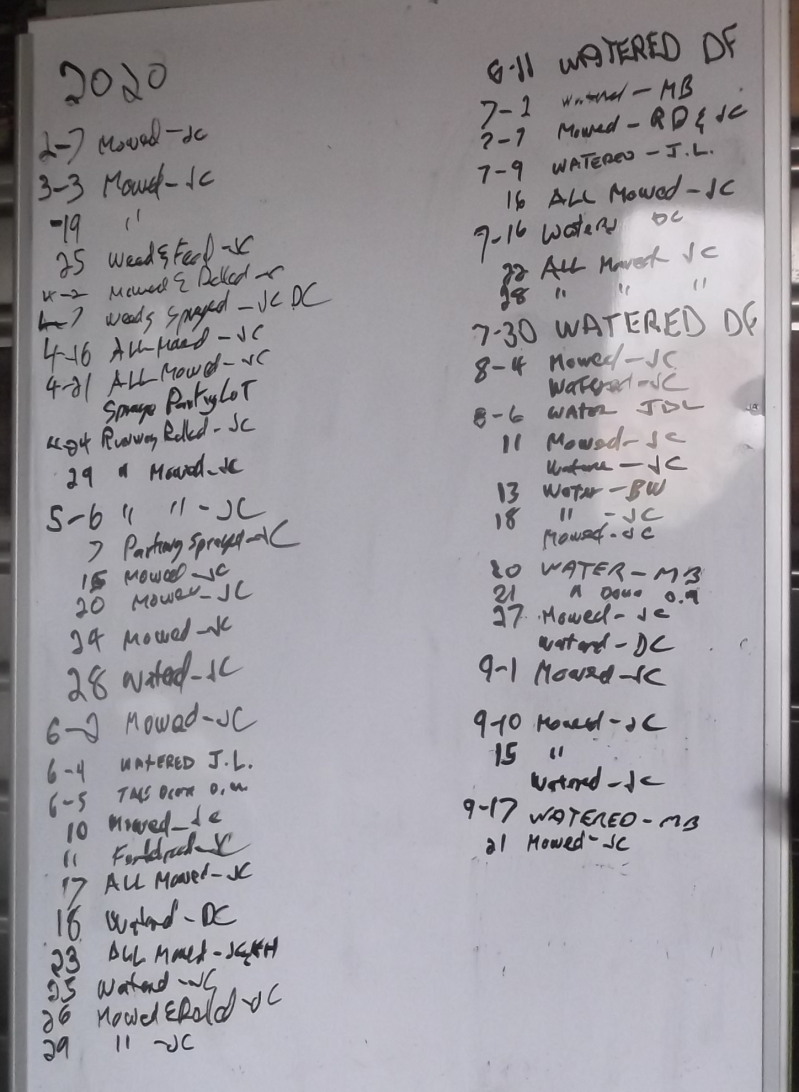 2020
2-7 Mowed-JC
3-3 Mowed-JC
-19 "
25 Weed & Feed-JC
4-2 Mowed & Rolled-JC
4-7 Weeds Sprayed-JC DC
4-16 ALL Mowed-JC
4-21 ALL Mowed-JC
Sprayed Parking LOT
4-24 Runway Rolled-JC
29 " Mowed-JC
5-6 " "-JC
7 Parking Sprayed-JC
15 Mowed-JC
20 Mowed-JC
24 Mowed-JC
28 Watered-JC
6-2 Mowed-JC
6-4 WATERED J.L.
6-5
10 Mowed-JC
11 JC
17 ALL Mowed-JC
18 Watered-DC
23 ALL Mowed-JC&KH
25 Watered-JC
26 Mowed & Rolled-JC
29 "-JC
6-11 WATERED DF
7-2 Watered-MB
7-7 Mowed-RD & JC
7-9 WATERED-J.L.
16 ALL Mowed-JC
7-16 Watered DC
22 ALL Mowed JC
28 " " "
7-30 WATERED DF
8-4 Mowed-JC
Watered-JC
8-6 WATER JDL
11 Mowed-JC
Watered-JC
13 Water-BW
18 "-JC
Mowed-JC
20 WATER-MB
21 "
27 Mowed-JC
Watered-DC
9-1 Mowed-JC
9-10 Mowed-JC
15 "
Watered-JC
9-17 WATERED-MB
21 Mowed-JC